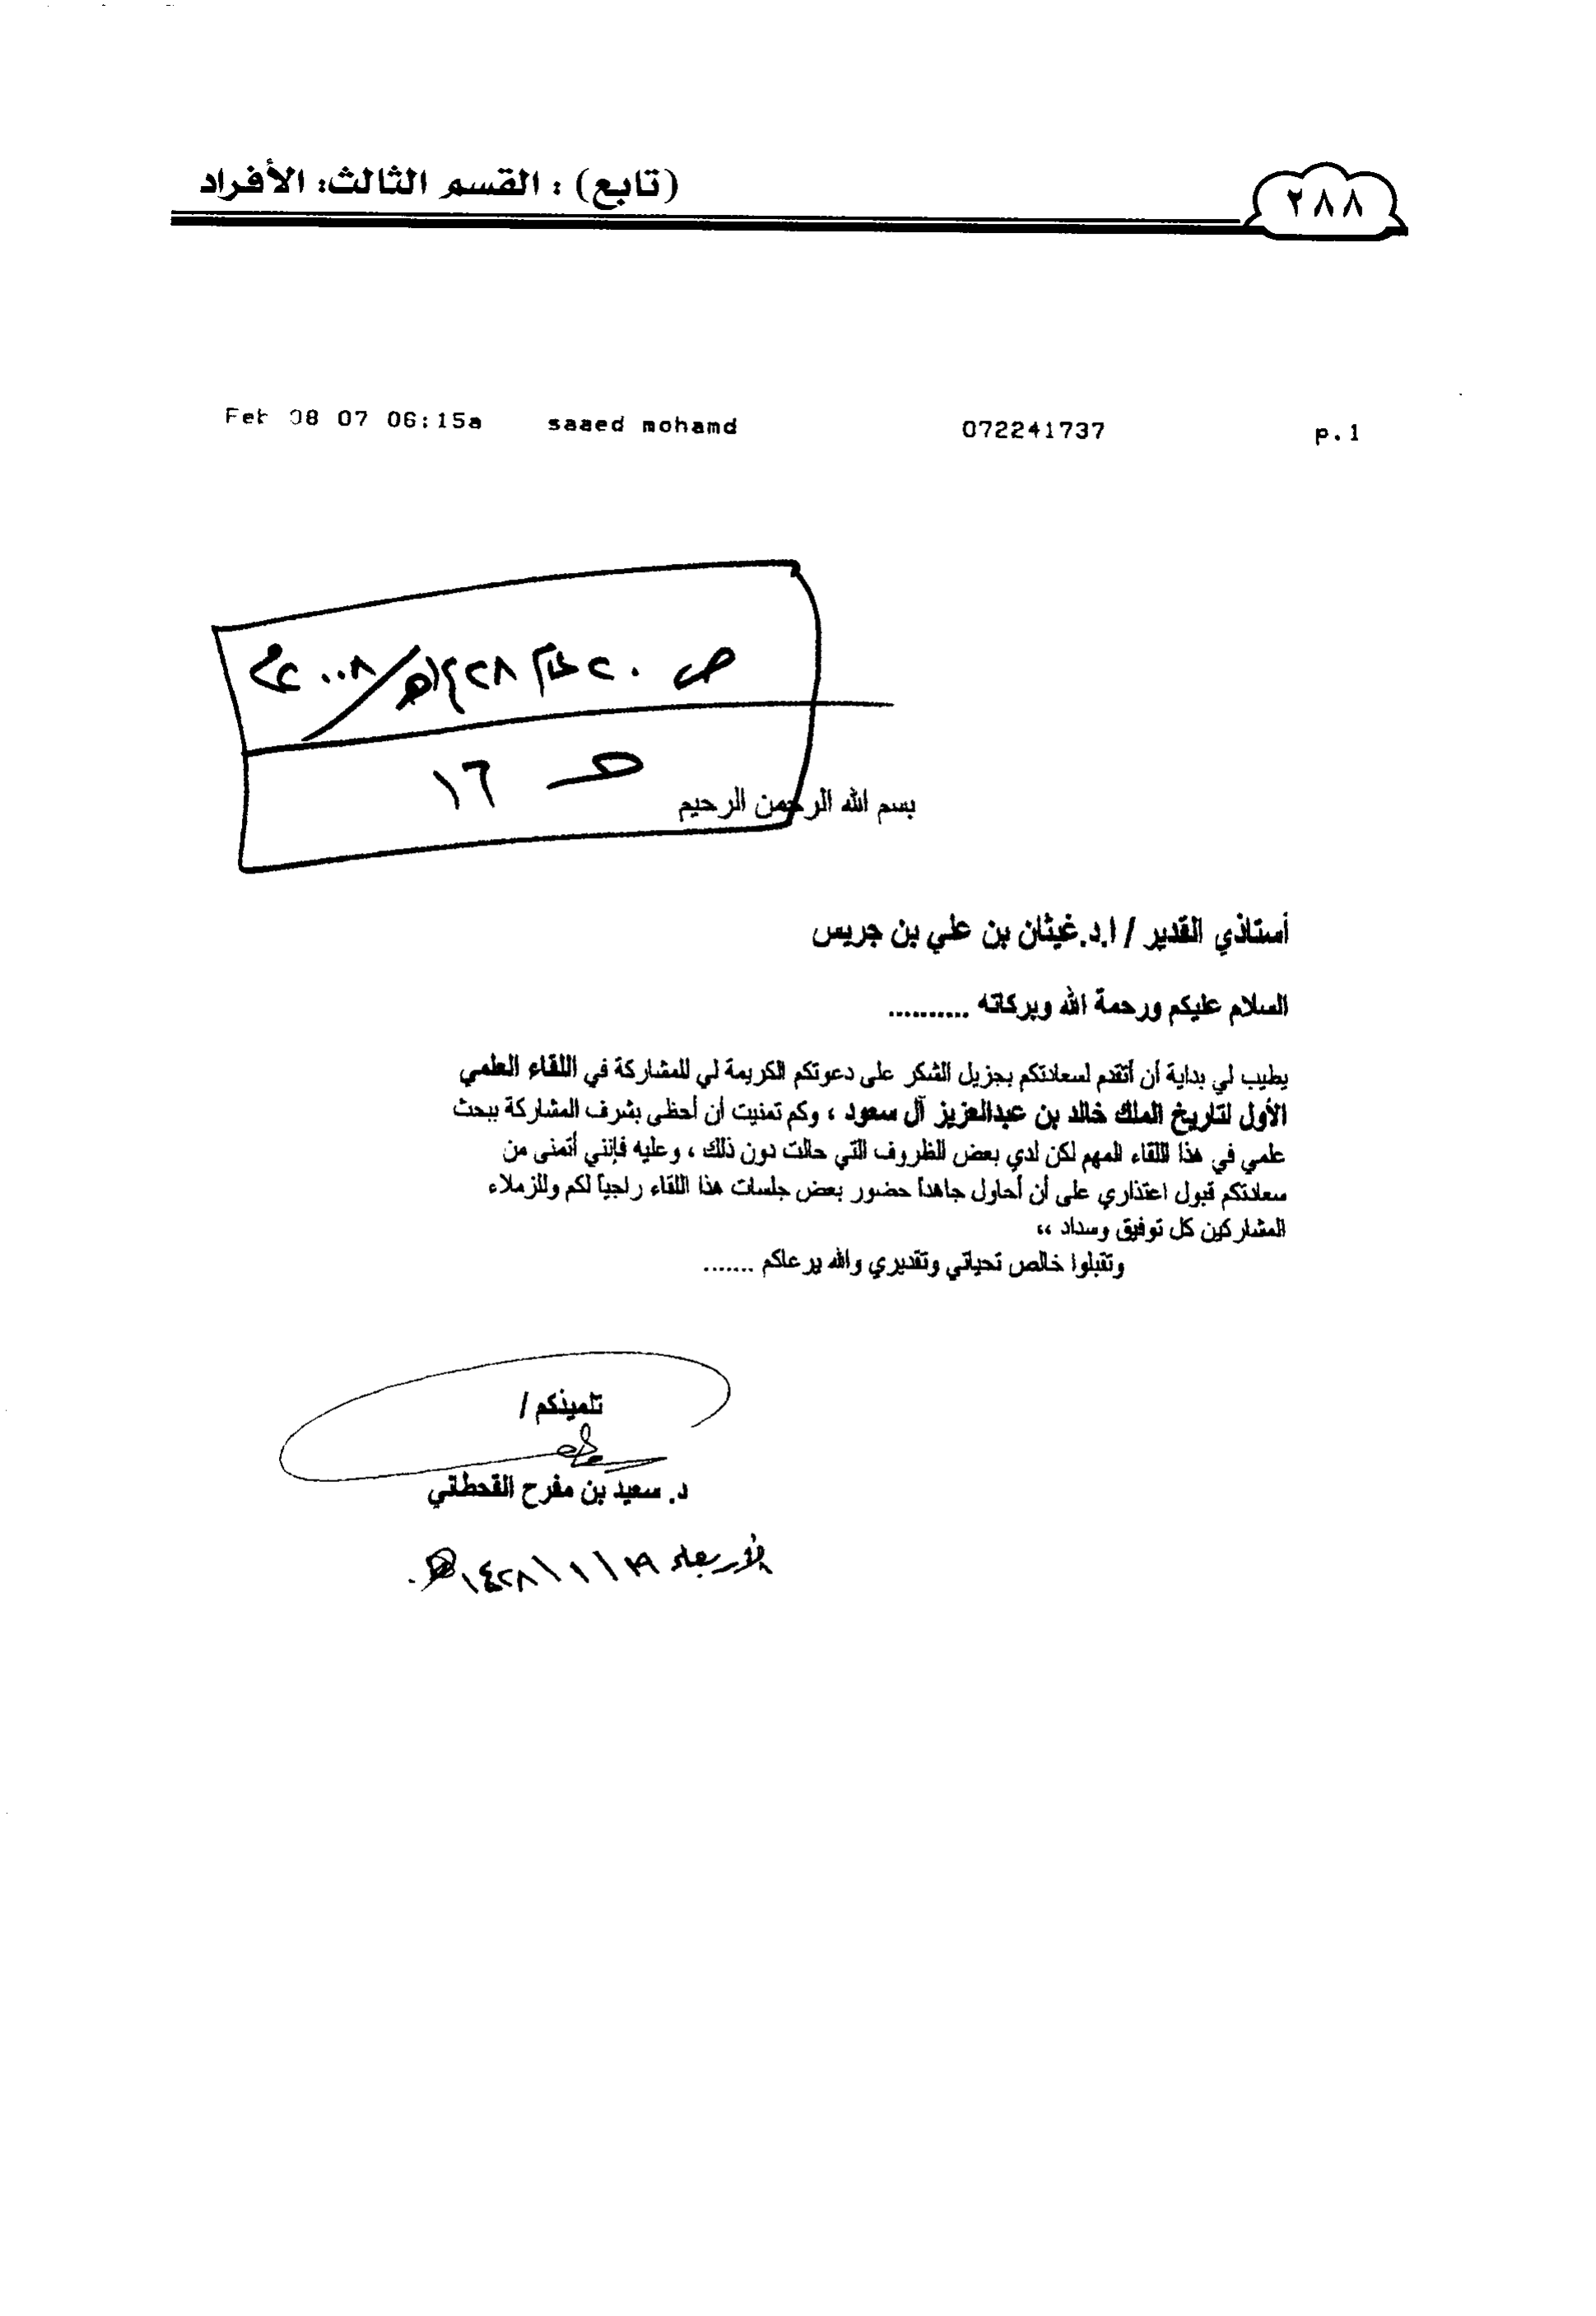 ٢٨٨
(تابع) : القسم الثالث: الأفراد
Feb 08 07 06:15a saaed mohamd 072241737 p.1
ص ٢٠ ١٤٢٨هـ/
ص ١٦
بسم الله الرحمن الرحيم
أستاذي القدير / ا.د.غيثان بن علي بن جريس
السلام عليكم ورحمة الله وبركاته ..........
يطيب لي بداية أن أتقدم لسعادتكم بجزيل الشكر على دعوتكم الكريمة لي للمشاركة في اللقاء العلمي
الأول لتاريخ الملك خالد بن عبدالعزيز آل سعود ، وكم تمنيت أن أحظى بشرف المشاركة ببحث
علمي في هذا اللقاء المهم لكن لدي بعض الظروف التي حالت دون ذلك ، وعليه فإنني أتمنى من
سعادتكم قبول اعتذاري على أن أحاول جاهداً حضور بعض جلسات هذا اللقاء راجياً لكم وللزملاء
المشاركين كل توفيق وسداد ،،
وتقبلوا خالص تحياتي وتقديري والله يرعاكم .......
تلميذكم /
د. سعيد بن مفرح القحطاني
الأربعاء ١٩/١/١٤٢٨هـ.